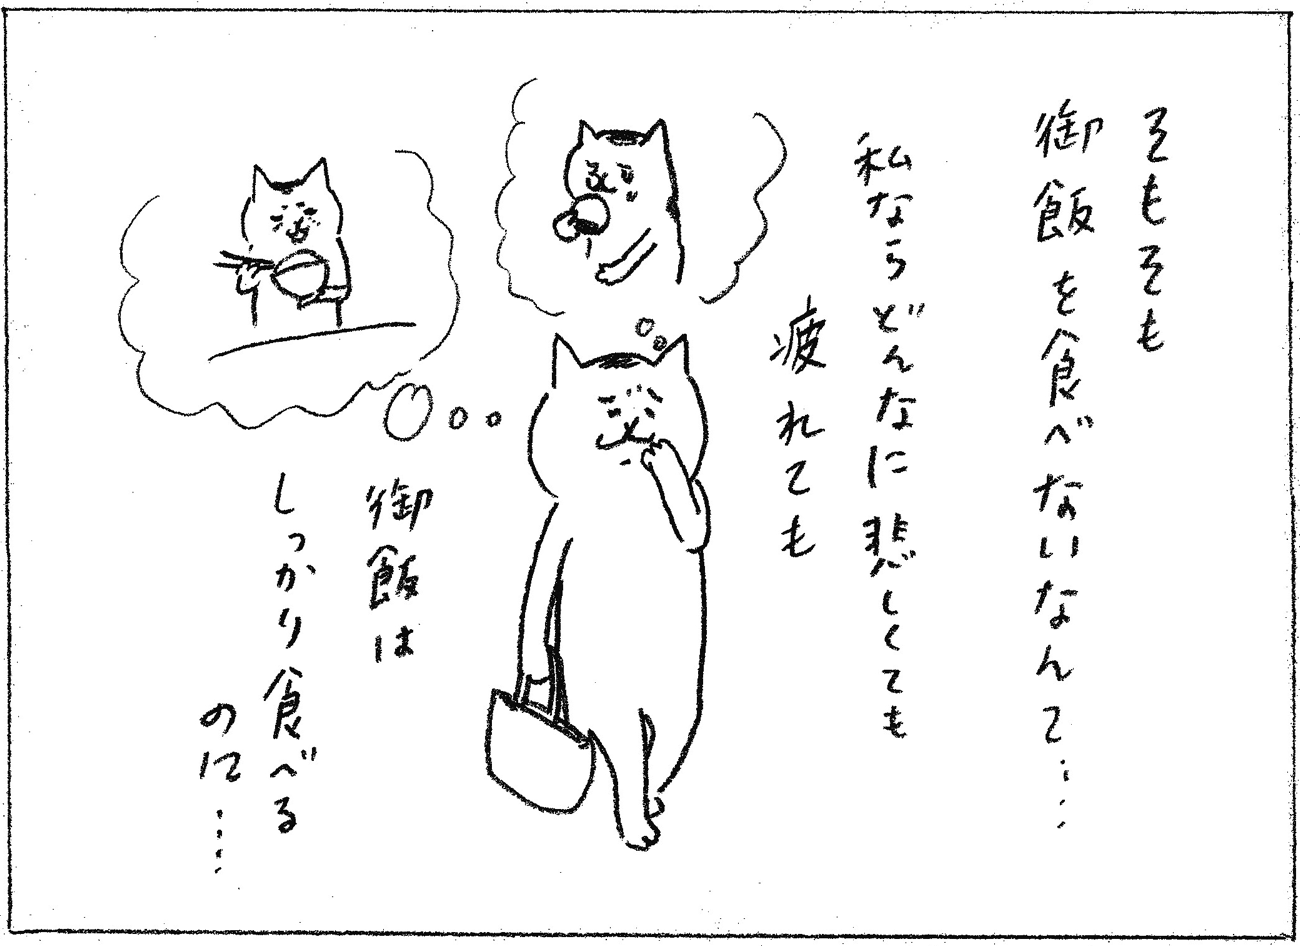 そもそも
御飯を食べないなんて……
私ならどんなに悲しくても
疲れても
御飯は
しっかり食べる
のに……